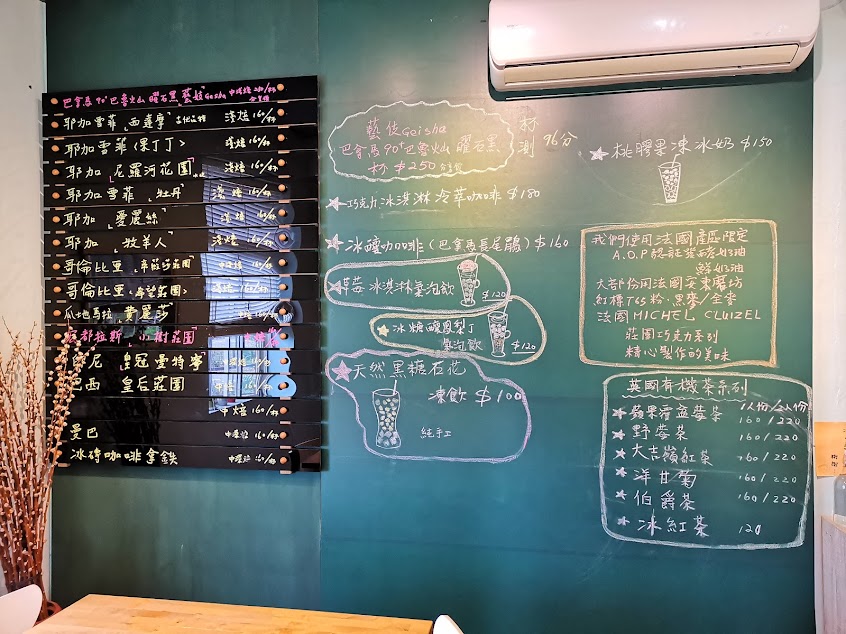 巴拿馬90+巴魯火山 曜石黑 藝妓 Geisha 中淺焙
耶加雪菲 西達摩 淺焙 160/杯
耶加雪菲〈果丁丁〉 淺焙 160/杯
耶加 尼羅河花園 淺焙 160/杯
耶加雪菲 牡丹 淺焙 160/杯
耶加 愛麗絲 淺焙 160/杯
耶加 牧羊人 淺焙 160/杯
哥倫比亞 莊園 160/杯
哥倫比亞〈希望莊園〉 160/杯
瓜地馬拉 160/杯
都拉斯 小樹莊園
皇冠曼特寧 160/杯
巴西 皇后莊園 中焙 160/杯
中焙 160/杯
曼巴 中深焙 160/杯
冰磚咖啡拿鐵 中深焙 160/杯
藝伎Geisha
巴拿馬90+巴魯火山 曜石黑
杯 $250
杯測 96分
巧克力冰淇淋 冷萃咖啡 $180
冰釀咖啡(巴拿馬長尾鵑) $160
莓 冰淇淋氣泡飲
$120
冰燒釀鳳梨丁
氣泡飲 $120
天然黑糖石花
凍飲 $100
純手工
桃膠果凍冰奶 $150
我們使用法國產區限定
A.O.P認証發酵奶油
鮮奶油
大部份用法國安東磨坊
紅標T65粉·黑麥/全麥
法國MICHEL CLUIZEL
莊園巧克力系列
精心製作的美味
英國有機茶系列
1人份/2人份
蘋果覆盆莓茶 160/220
野莓茶 160/220
大吉嶺紅茶 160/220
洋甘菊 160/220
伯爵茶 160/220
冰紅茶 120